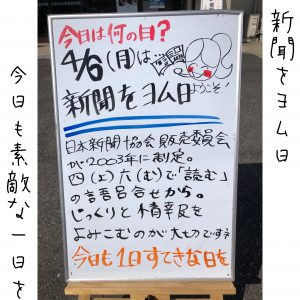 新聞をヨム日
今日は何の日?
4/6(月)は…
新聞
ようこそ!
新聞をヨム日
日本新聞協会販売委員会
が2003年に制定。
四(よ)六(む)で「読む」
の語呂合せから。
じっくりと情報を
よみこむのが大切ですネ
今日も1日すてきな日を
今日も素敵な一日を